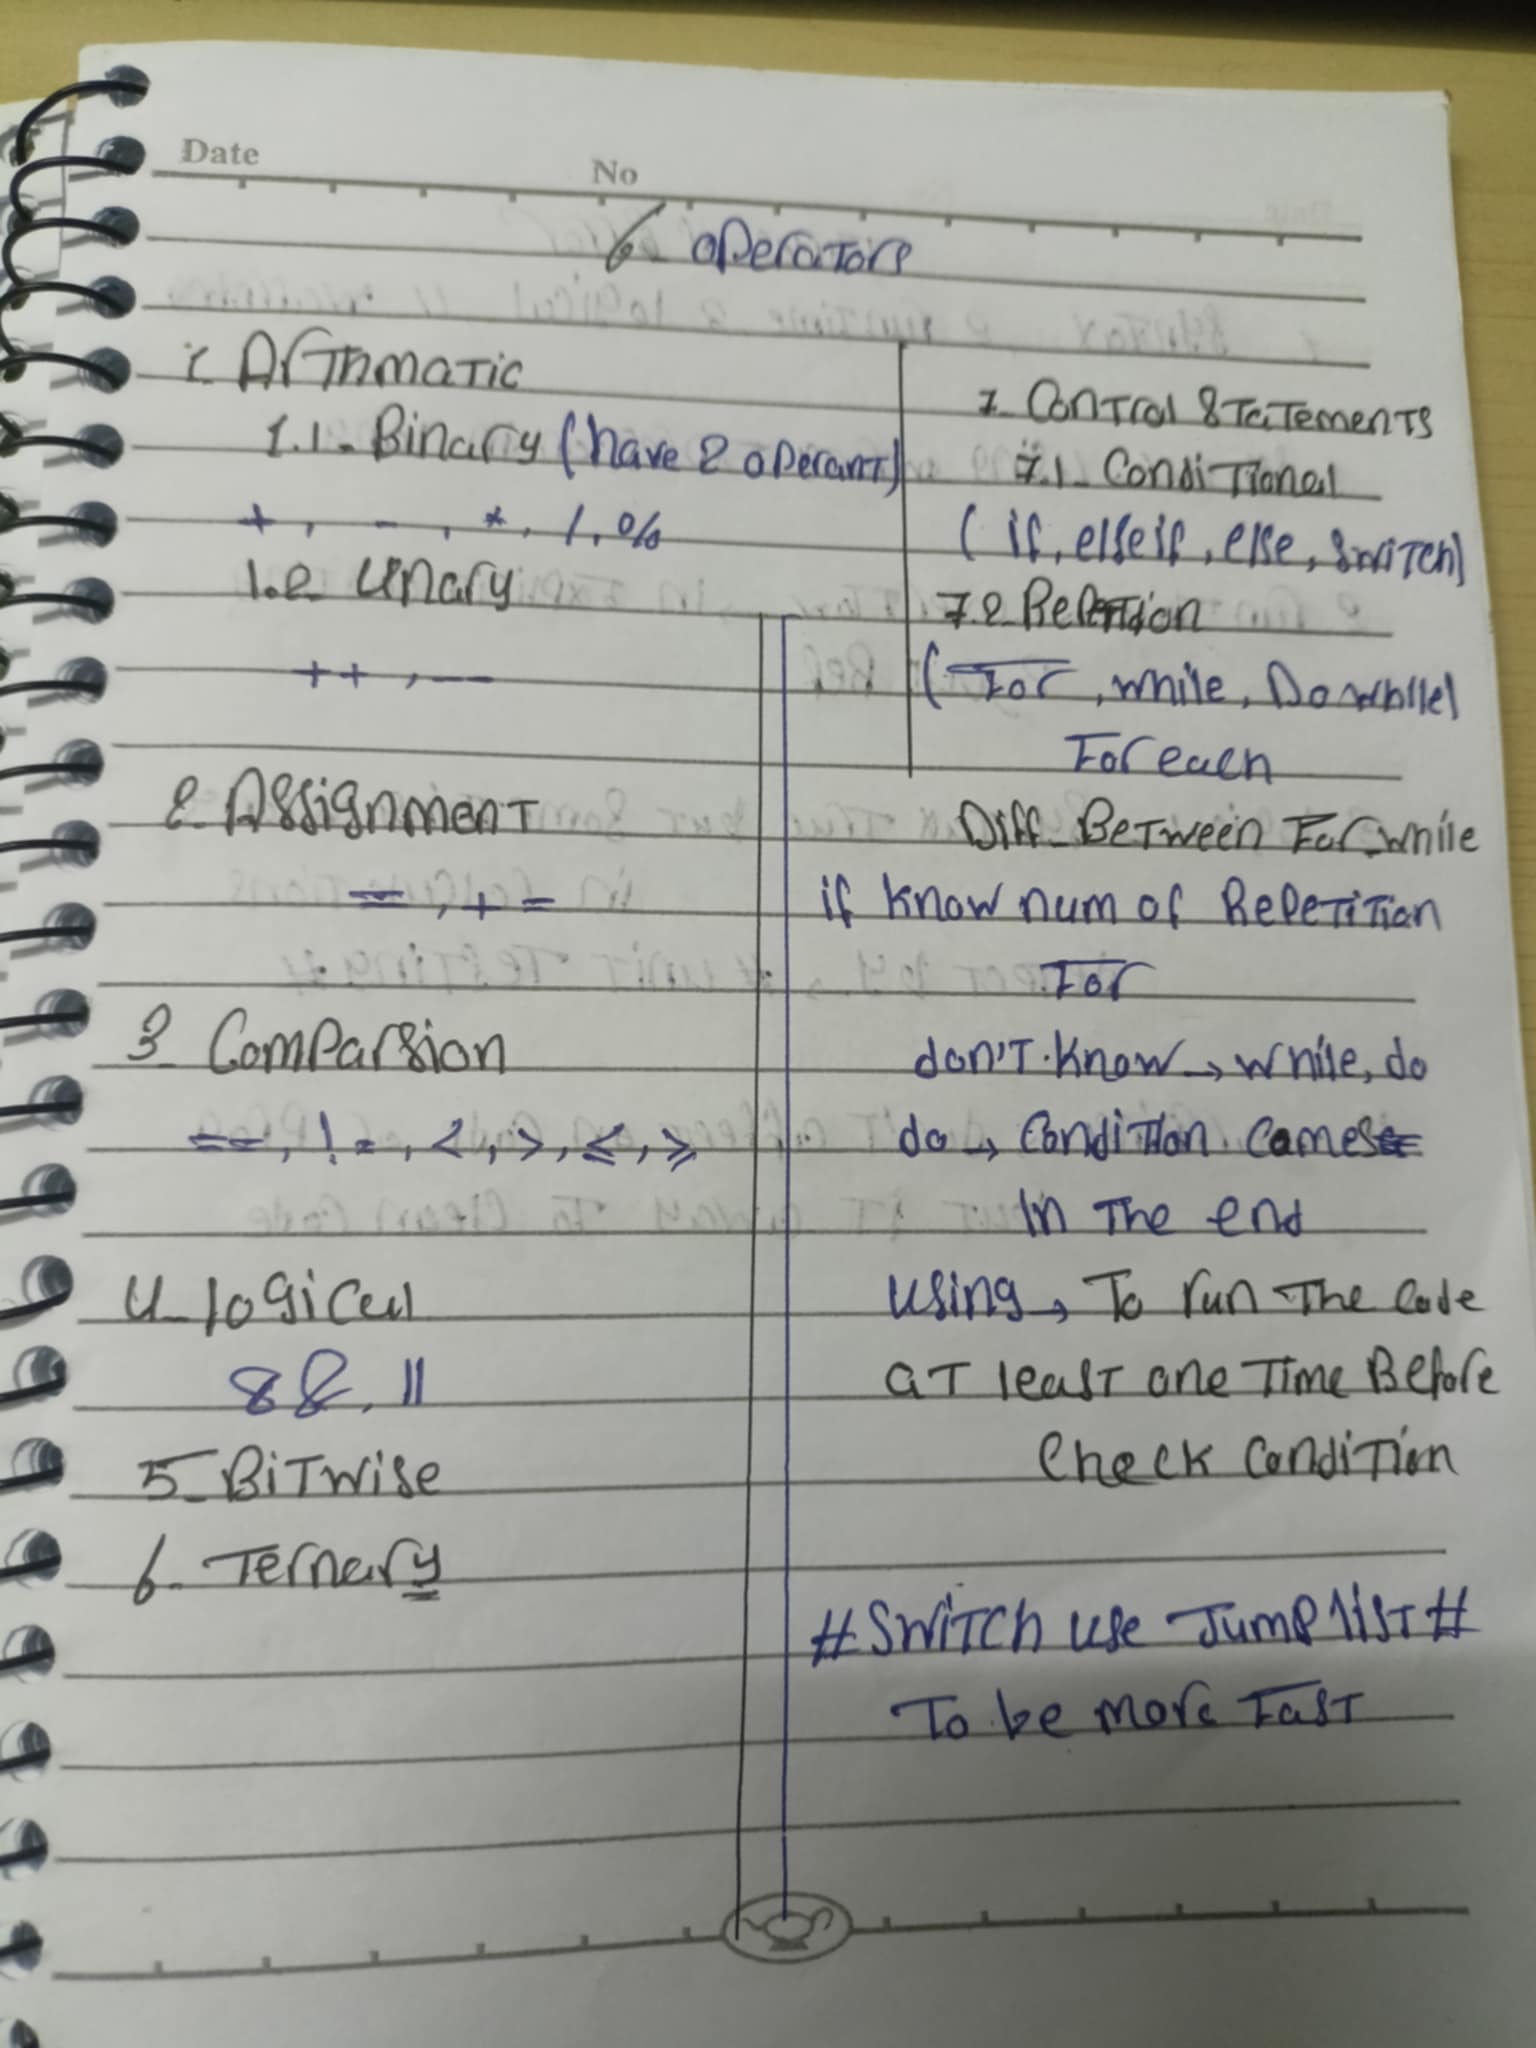 Date
No
6 operators
1. Arthmatic
1.1- Binary (have 2 operant)
+, -, *, /, %
1.2 unary
++, --
2. Assignment
=, +=
3- Comparsion
==, !=, <, >, ≤, ≥
4- logical
&&, ||
5- Bitwise
6- Ternary
7- Control statements
7.1- Conditional
(if, elseif, else, switch)
7.2- Repetition
(For, while, Do while)
For each
Diff- Between For-while
if know num of Repetition
For
don't know → while, do
do → condition comes
in the end
using → To run the code
at least one time Before
check condition
# switch use Jump list #
To be more Fast